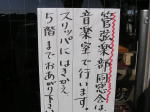 管弦楽部同窓会は
音楽室で行います。
スリッパにはきかえ
5階までおあがり下さ